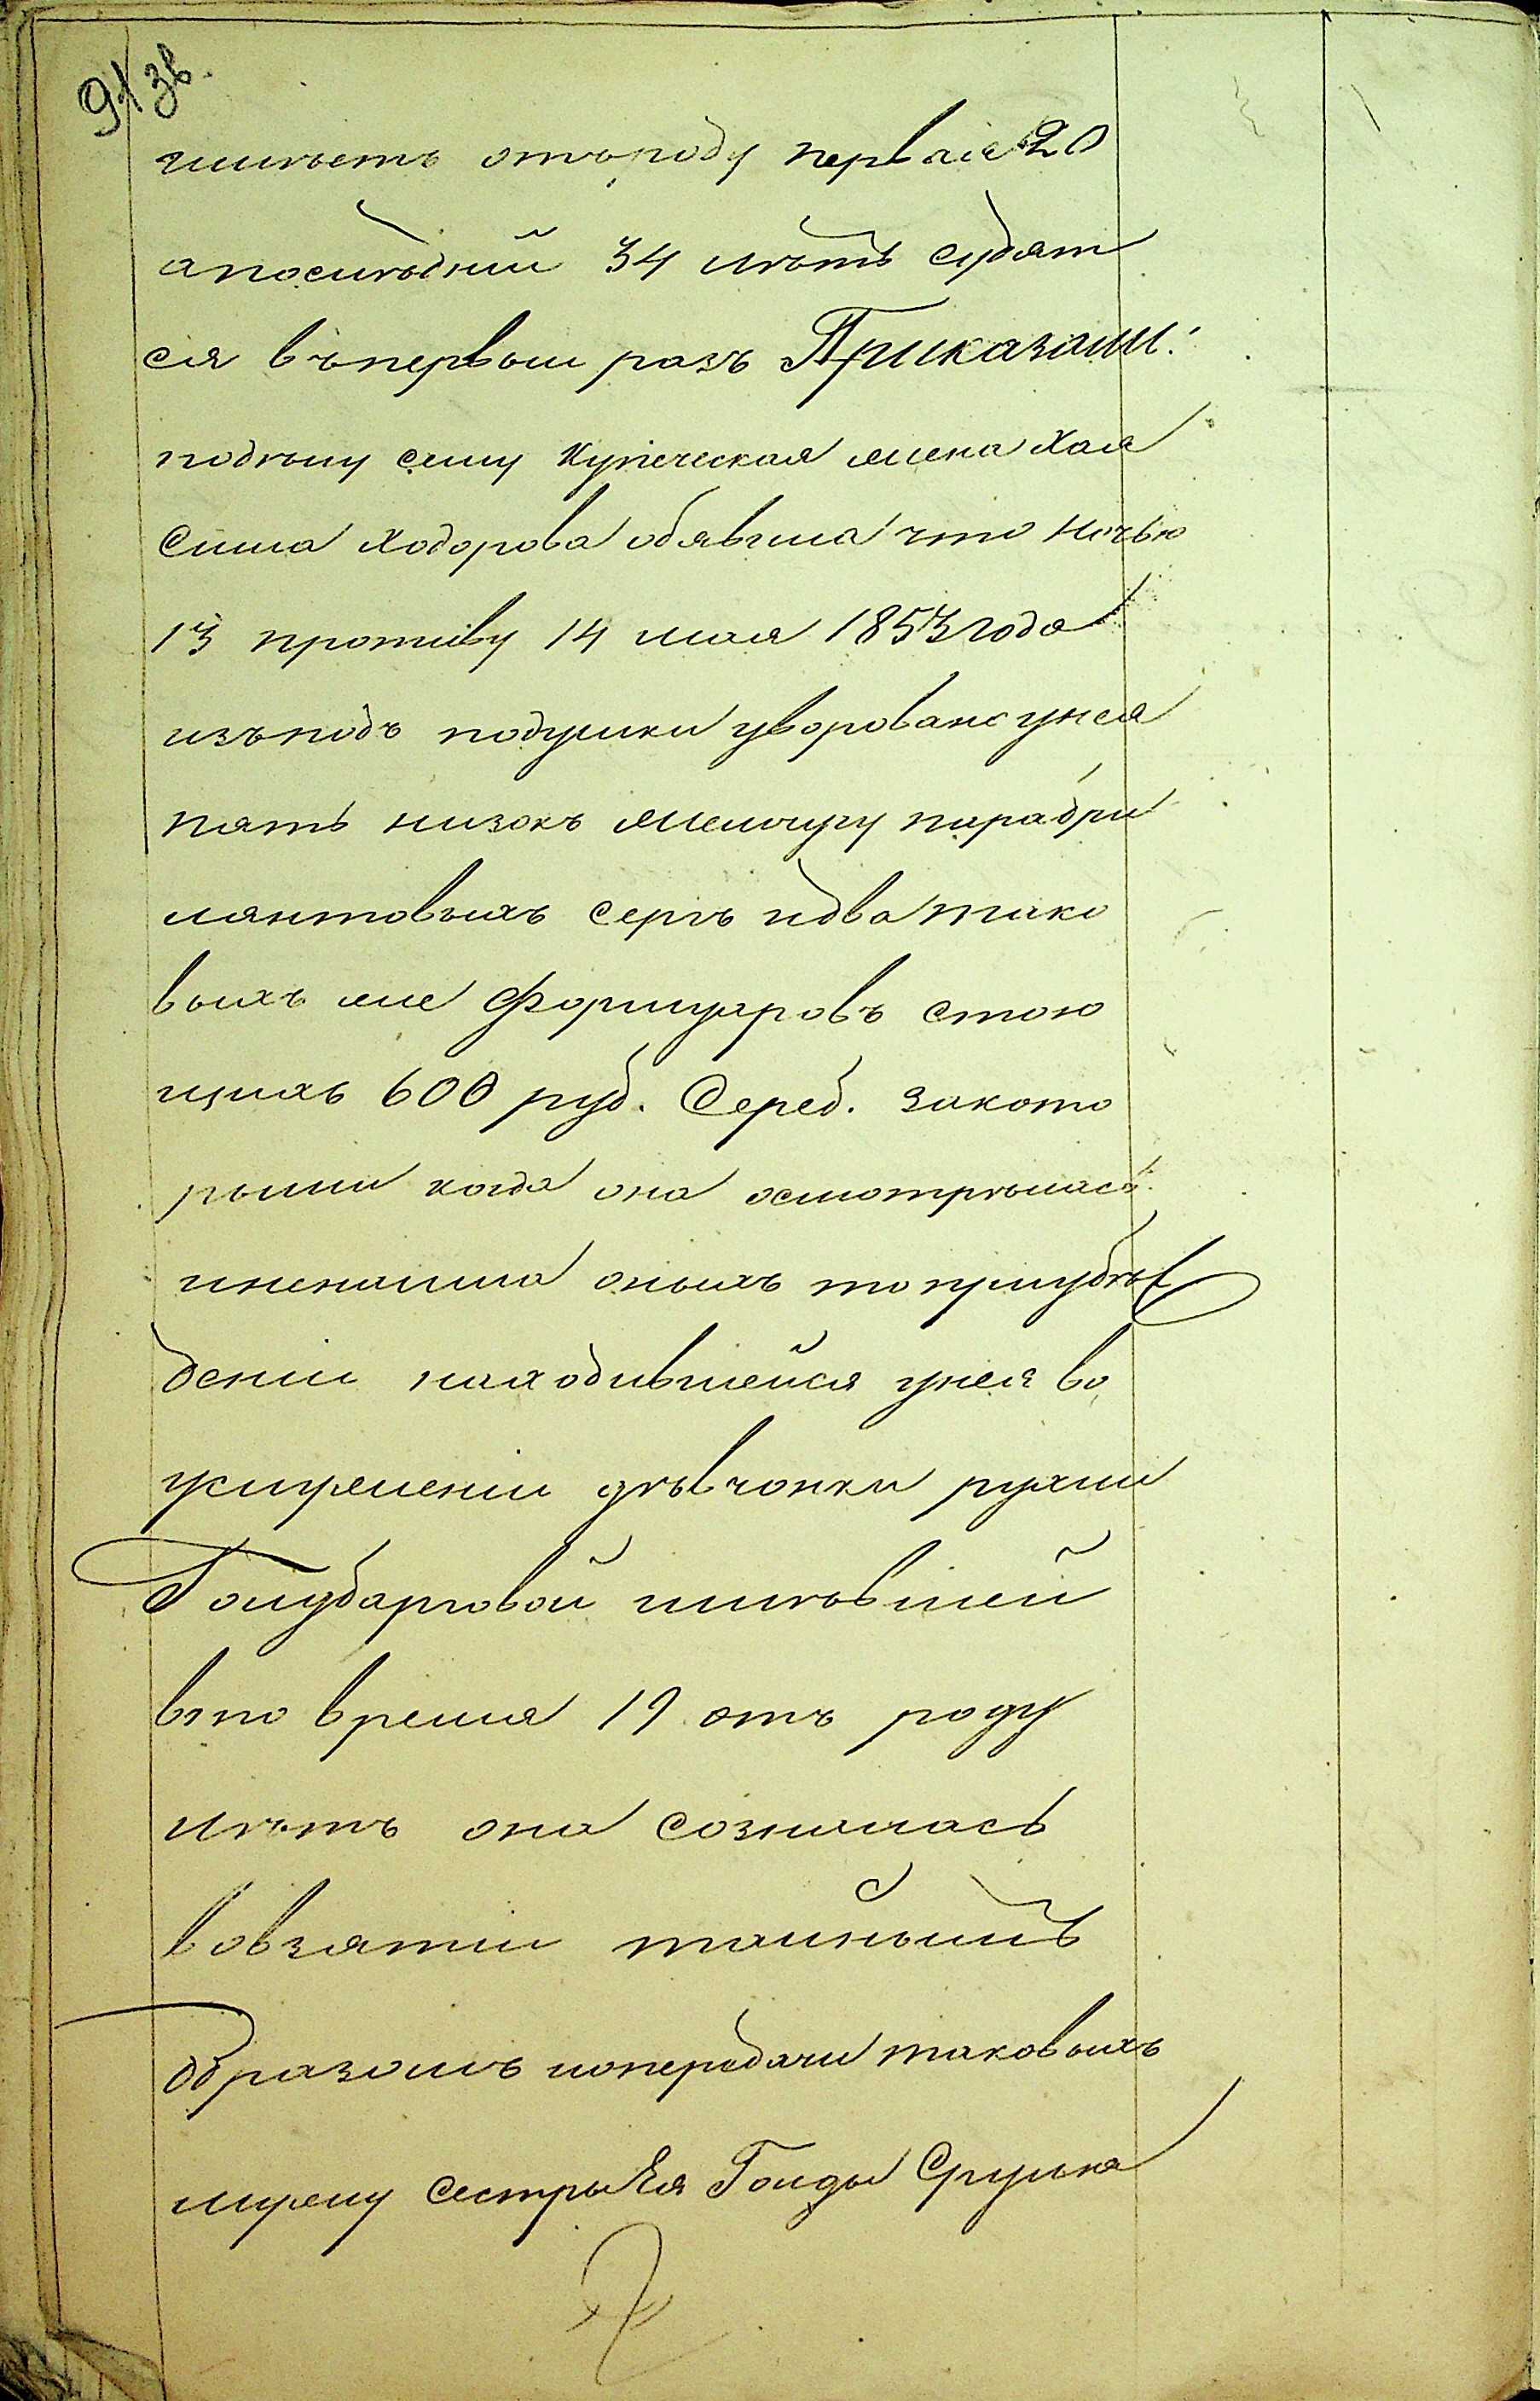 91 зв.
имѣетъ отъроду первая 20
апослѣдній 34 лѣтъ судят
ся въпервый разъ Приказали:
подѣлу сему Купеческая жена Хая
Сима Ходорова обявила что ночью
13 противу 14 мая 1853 года
изъподъ подушки уворовано унея
пять низокъ жемчугу пара бри
лянтовыхъ серегъ идва тако
выхъ же Фермуаровъ стою
щихъ 600 руб. Сереб. закото
рыми когда она осмотрѣлась
иненашла оныхъ то приубѣж
деніи находившейся унея во
услуженіи дѣвчонки рухли
Голубарговой имѣвшей
вто время 19 отъ роду
лѣтъ она созналась
вовзятіи тайнымъ
Образомъ ипередачи таковыхъ
мужу сестры Ея Голды Срулька